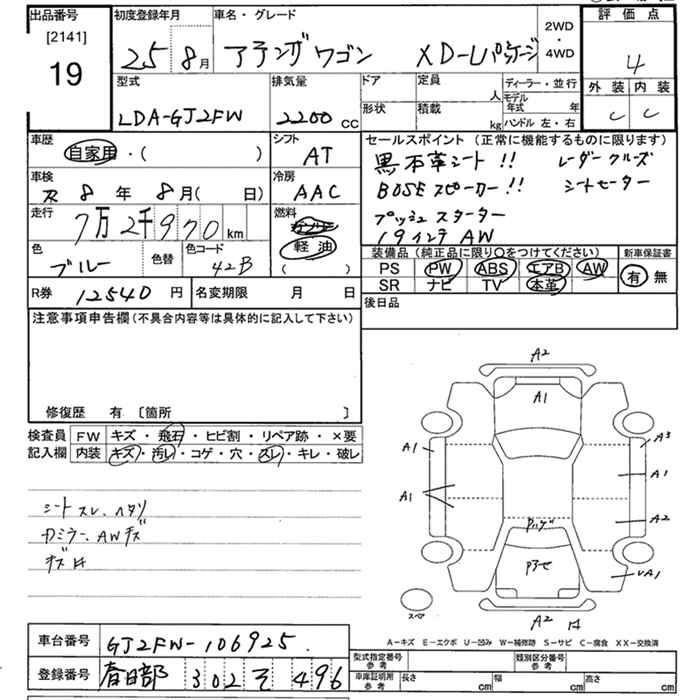 出品番号
[2141]
19
初度登録年月
25 8月
車名・グレード
アテンザワゴン XD-Lパッケージ
2WD
・
4WD
評価点
4
外装 内装
C C
型式
LDA-GJ2FW
排気量
2200 CC
ドア
形状
定員 人
積載 kg
ディーラー・並行
モデル年式 年
ハンドル 左・右
車歴
自家用・( )
シフト
AT
セールスポイント(正常に機能するものに限ります)
黒本革シート!! レーダークルーズ
BOSEスピーカー!! シートヒーター
プッシュスターター
19インチAW
車検
8年 8月( 日)
冷房
AAC
走行
7万2千970km
燃料
軽油
( )
色
ブルー
色替
色コード
42B
装備品(純正品に限り○をつけてください)
新車保証書
PS PW ABS エアB AW
SR ナビ TV 本革
有 無
R券 12540円
名変期限 月 日
後日品
注意事項申告欄(不具合内容等は具体的に記入して下さい)
修復歴 有 [箇所 ]
検査員記入欄
FW キズ・飛石・ヒビ割・リペア跡・×要
内装 キズ・汚レ・コゲ・穴・スレ・キレ・破レ
シートスレ、ヘタリ
Fミラー、AWキズ
キズ
A2
A1
A1
A3
A1
A1
A2
A2
スペア
A-キズ E-エクボ U-凹み W-補修跡 S-サビ C-腐食 XX-交換済
車台番号 GJ2FW-106925
登録番号 春日部 302 そ 496
型式指定番号参考
類別区分番号参考
車庫証明用参考 長さ cm 幅 cm 高さ cm